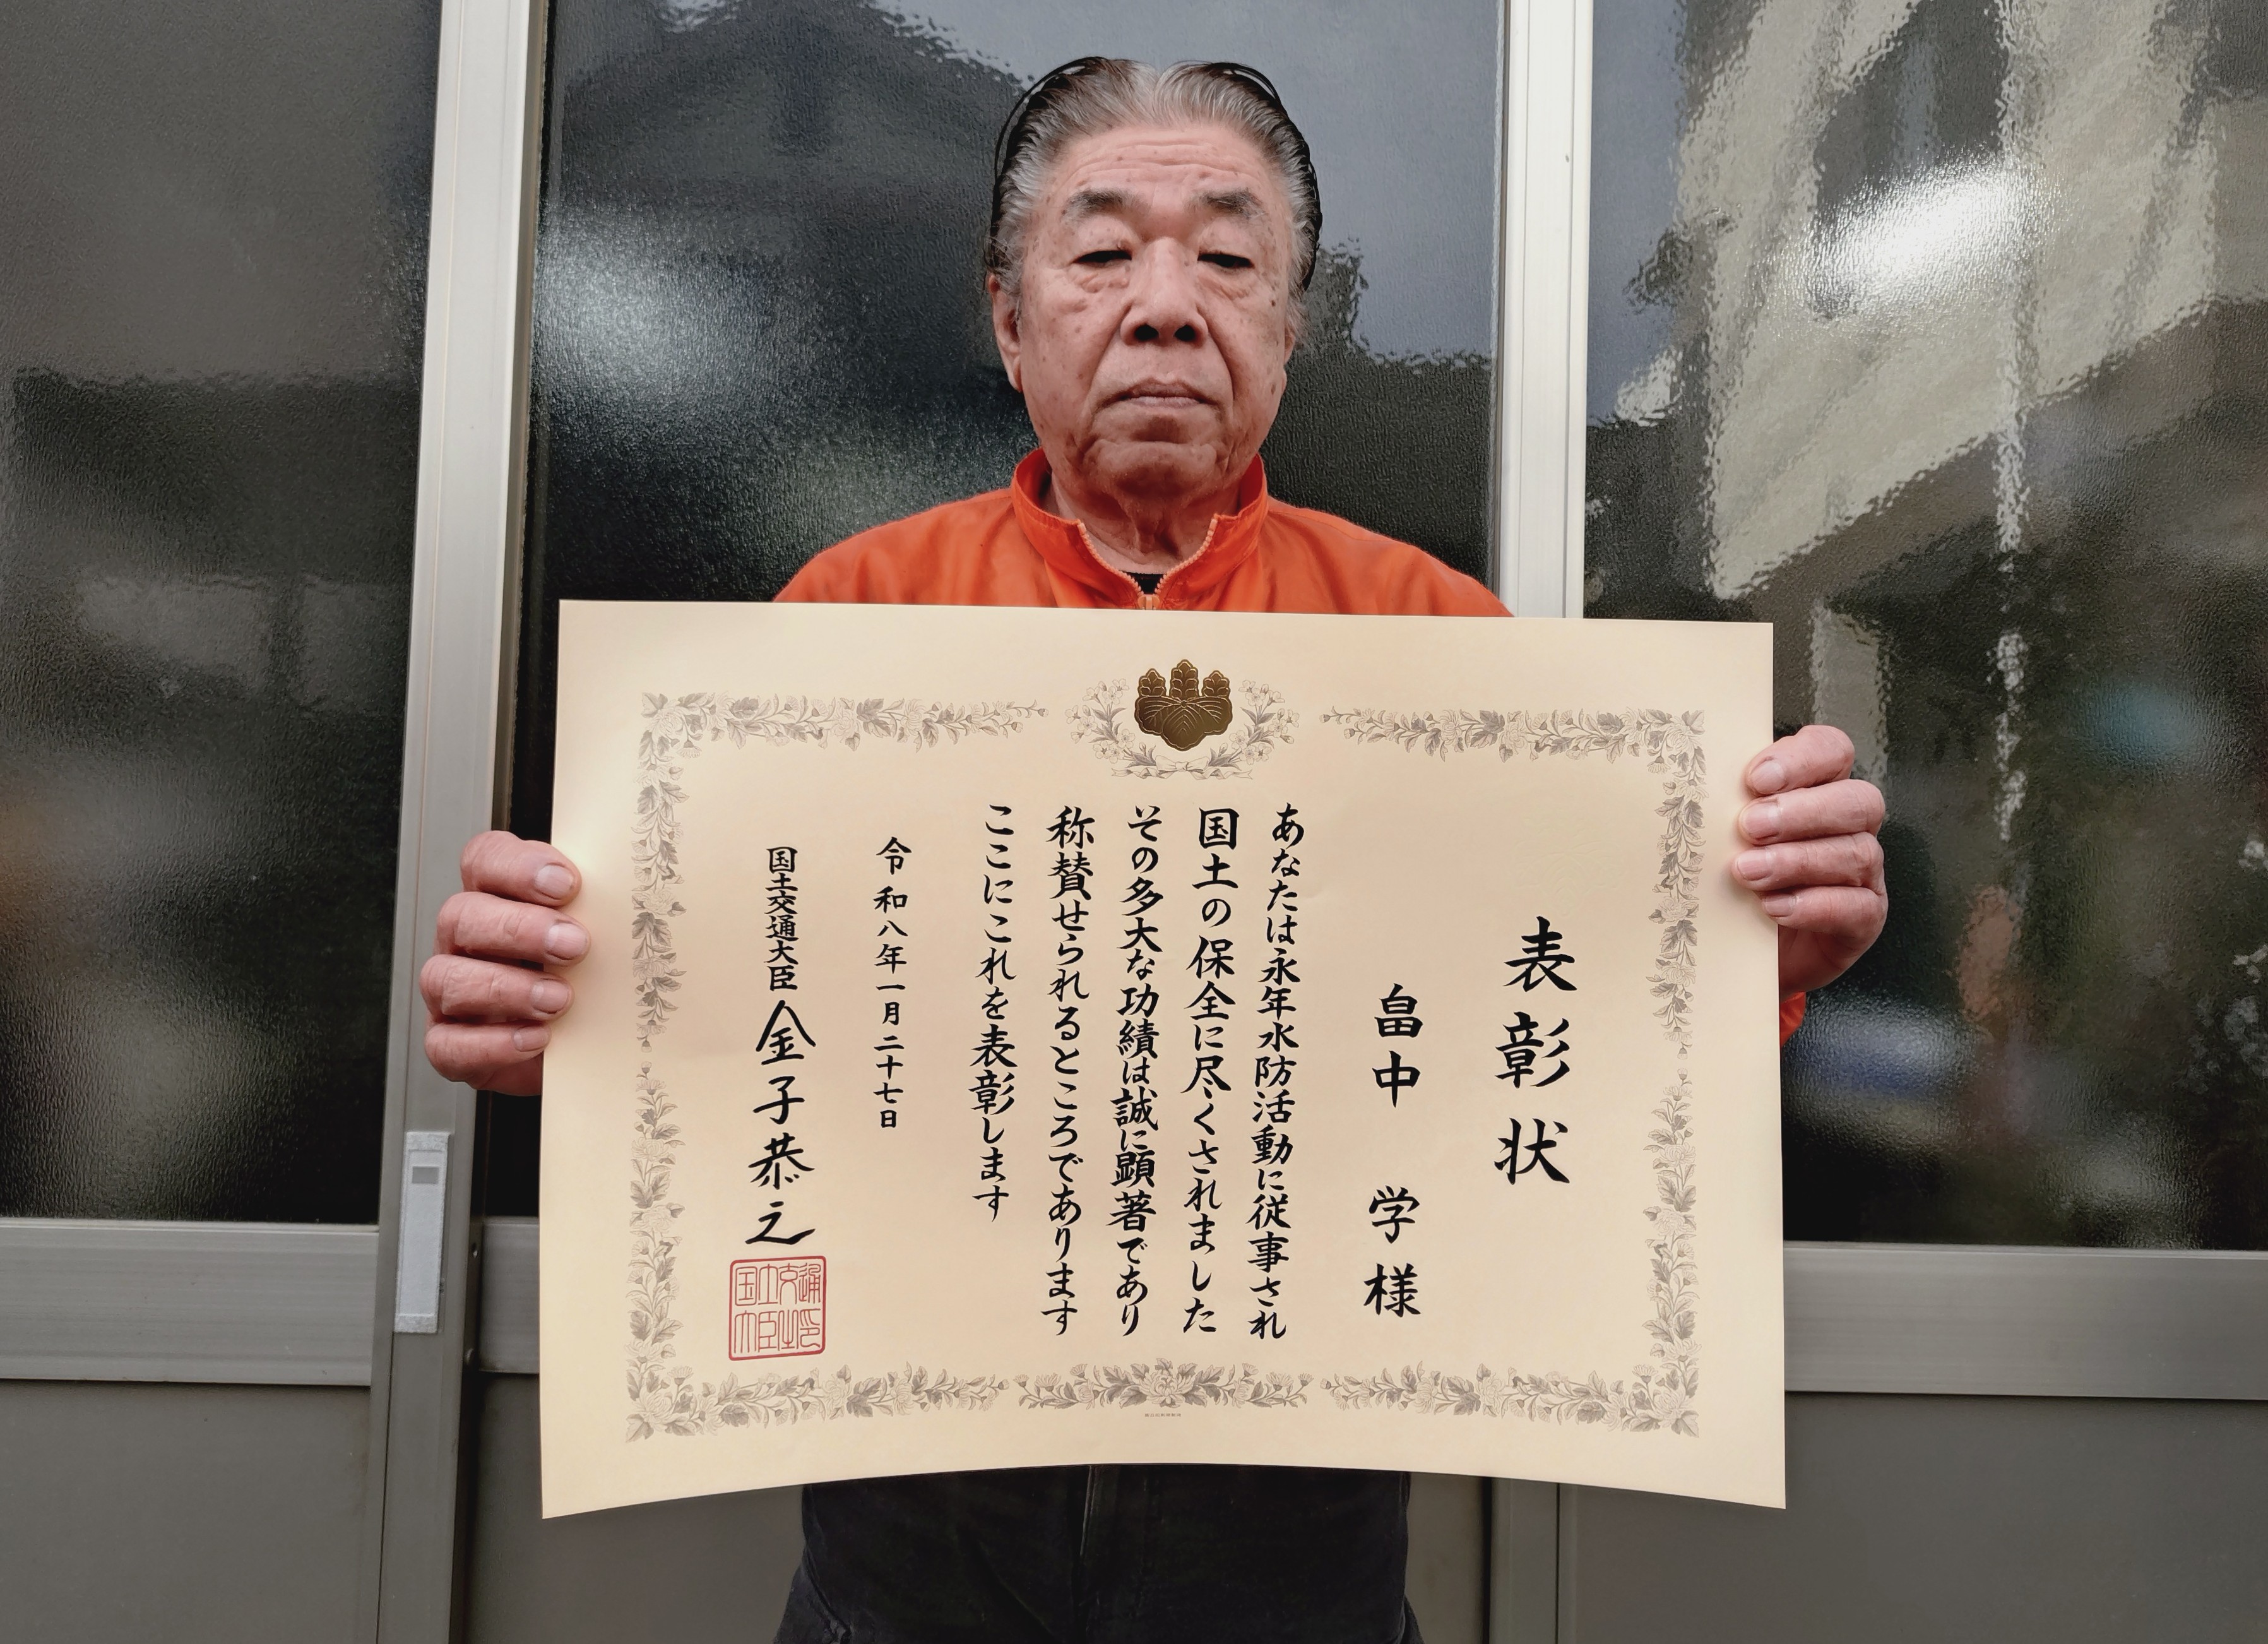 表彰状
畠中 学様
あなたは永年水防活動に従事され
国土の保全に尽くされました
その多大な功績は誠に顕著であり
称賛せられるところであります
ここにこれを表彰します
令和八年一月二十七日
国土交通大臣 金子恭之
国土交通
大臣之印